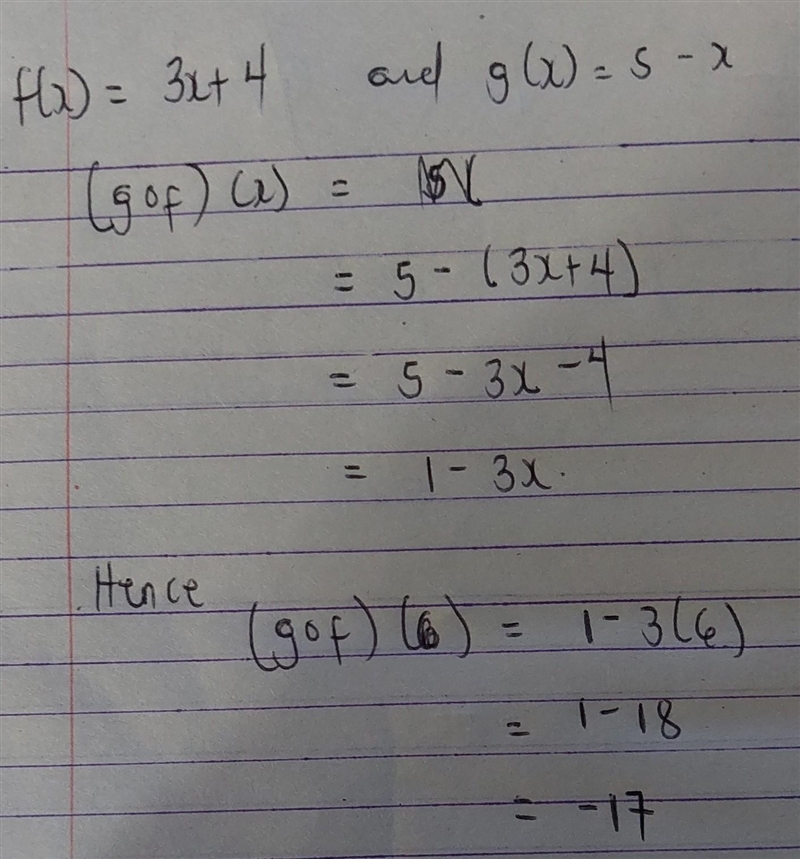 f(x) = 3x + 4 and g(x) = 5 - x
(gof)(x) =
= 5 - (3x+4)
= 5 - 3x - 4
= 1 - 3x.
Hence
(gof)(6) = 1 - 3(6)
= 1 - 18
= -17